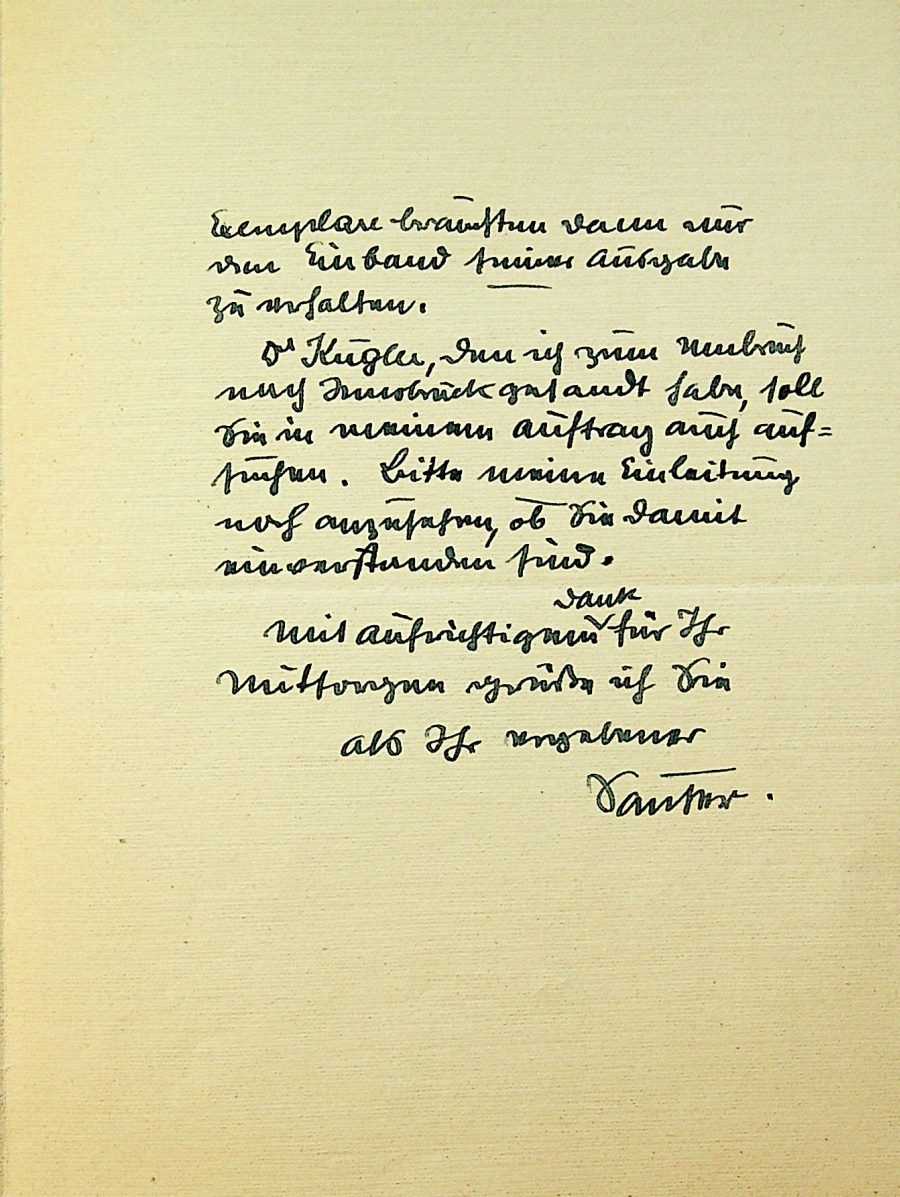 Exemplare bräuchten dann nur
den Einband seiner Ausgabe
zu erhalten.
Dr Kugler, den ich zum Umbruch
nach Innsbruck gesandt habe, soll
Sie in meinem Auftrag auch auf=
suchen. Bitte meine Einleitung
noch anzusehen, ob Sie damit
einverstanden sind.
Dank
Mit aufrichtigem für Ihr
Mitsorgen grüße ich Sie
als Ihr ergebener
Sauter.